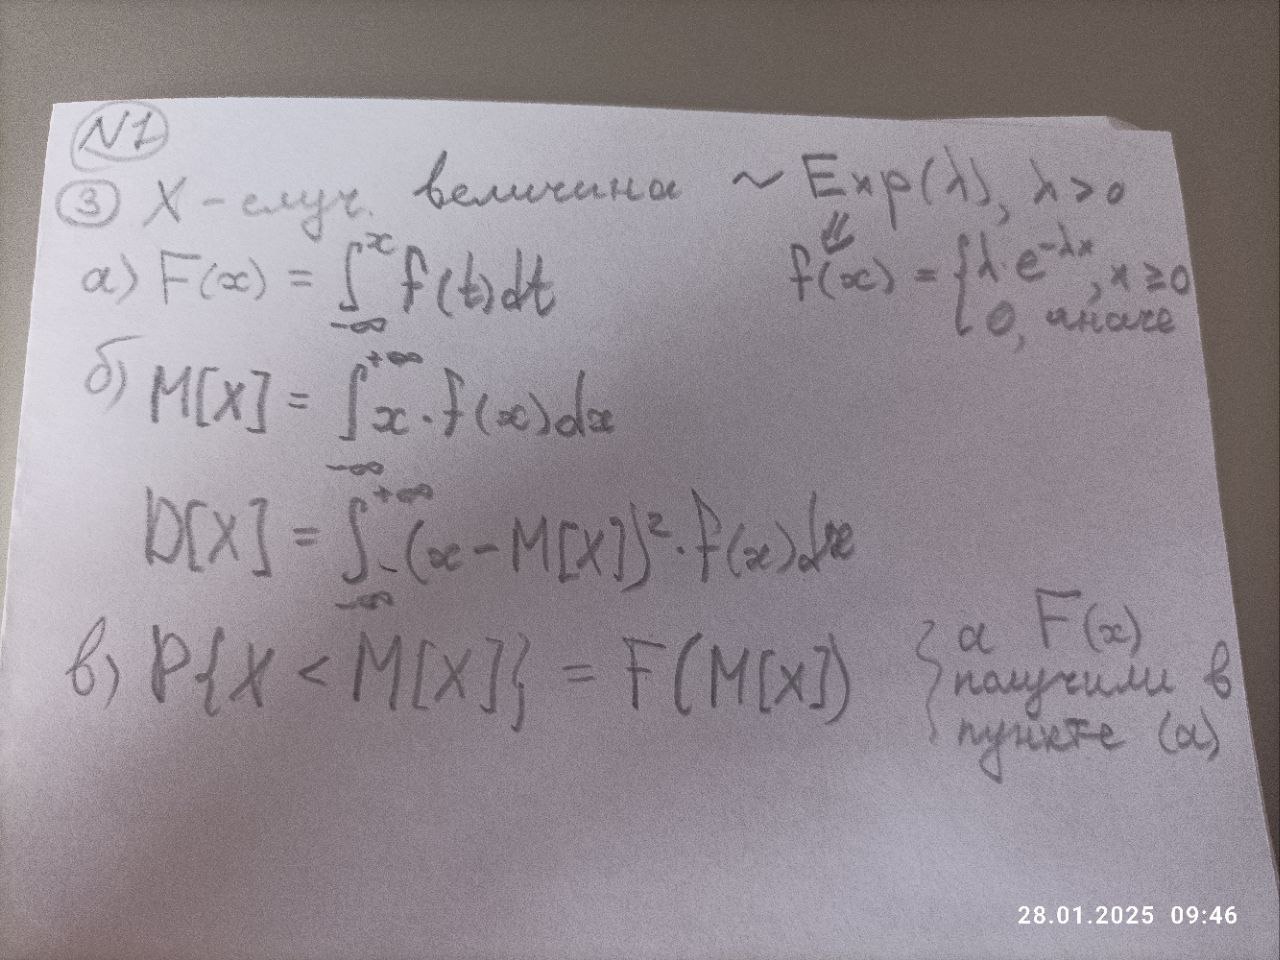 N1
③ X - случ. величина ~ Exp(λ), λ>0
⇓
а) F(x) = ∫_{-∞}^{x} f(t)dt
f(x) = { λ·e^{-λx}, x ≥ 0
0, иначе
б) M[X] = ∫_{-∞}^{+∞} x · f(x)dx
D[X] = ∫_{-∞}^{+∞} (x - M[X])² · f(x)dx
в) P{X < M[X]} = F(M[X])
{ а F(x)
получили в
пункте (а)
28.01.2025 09:46